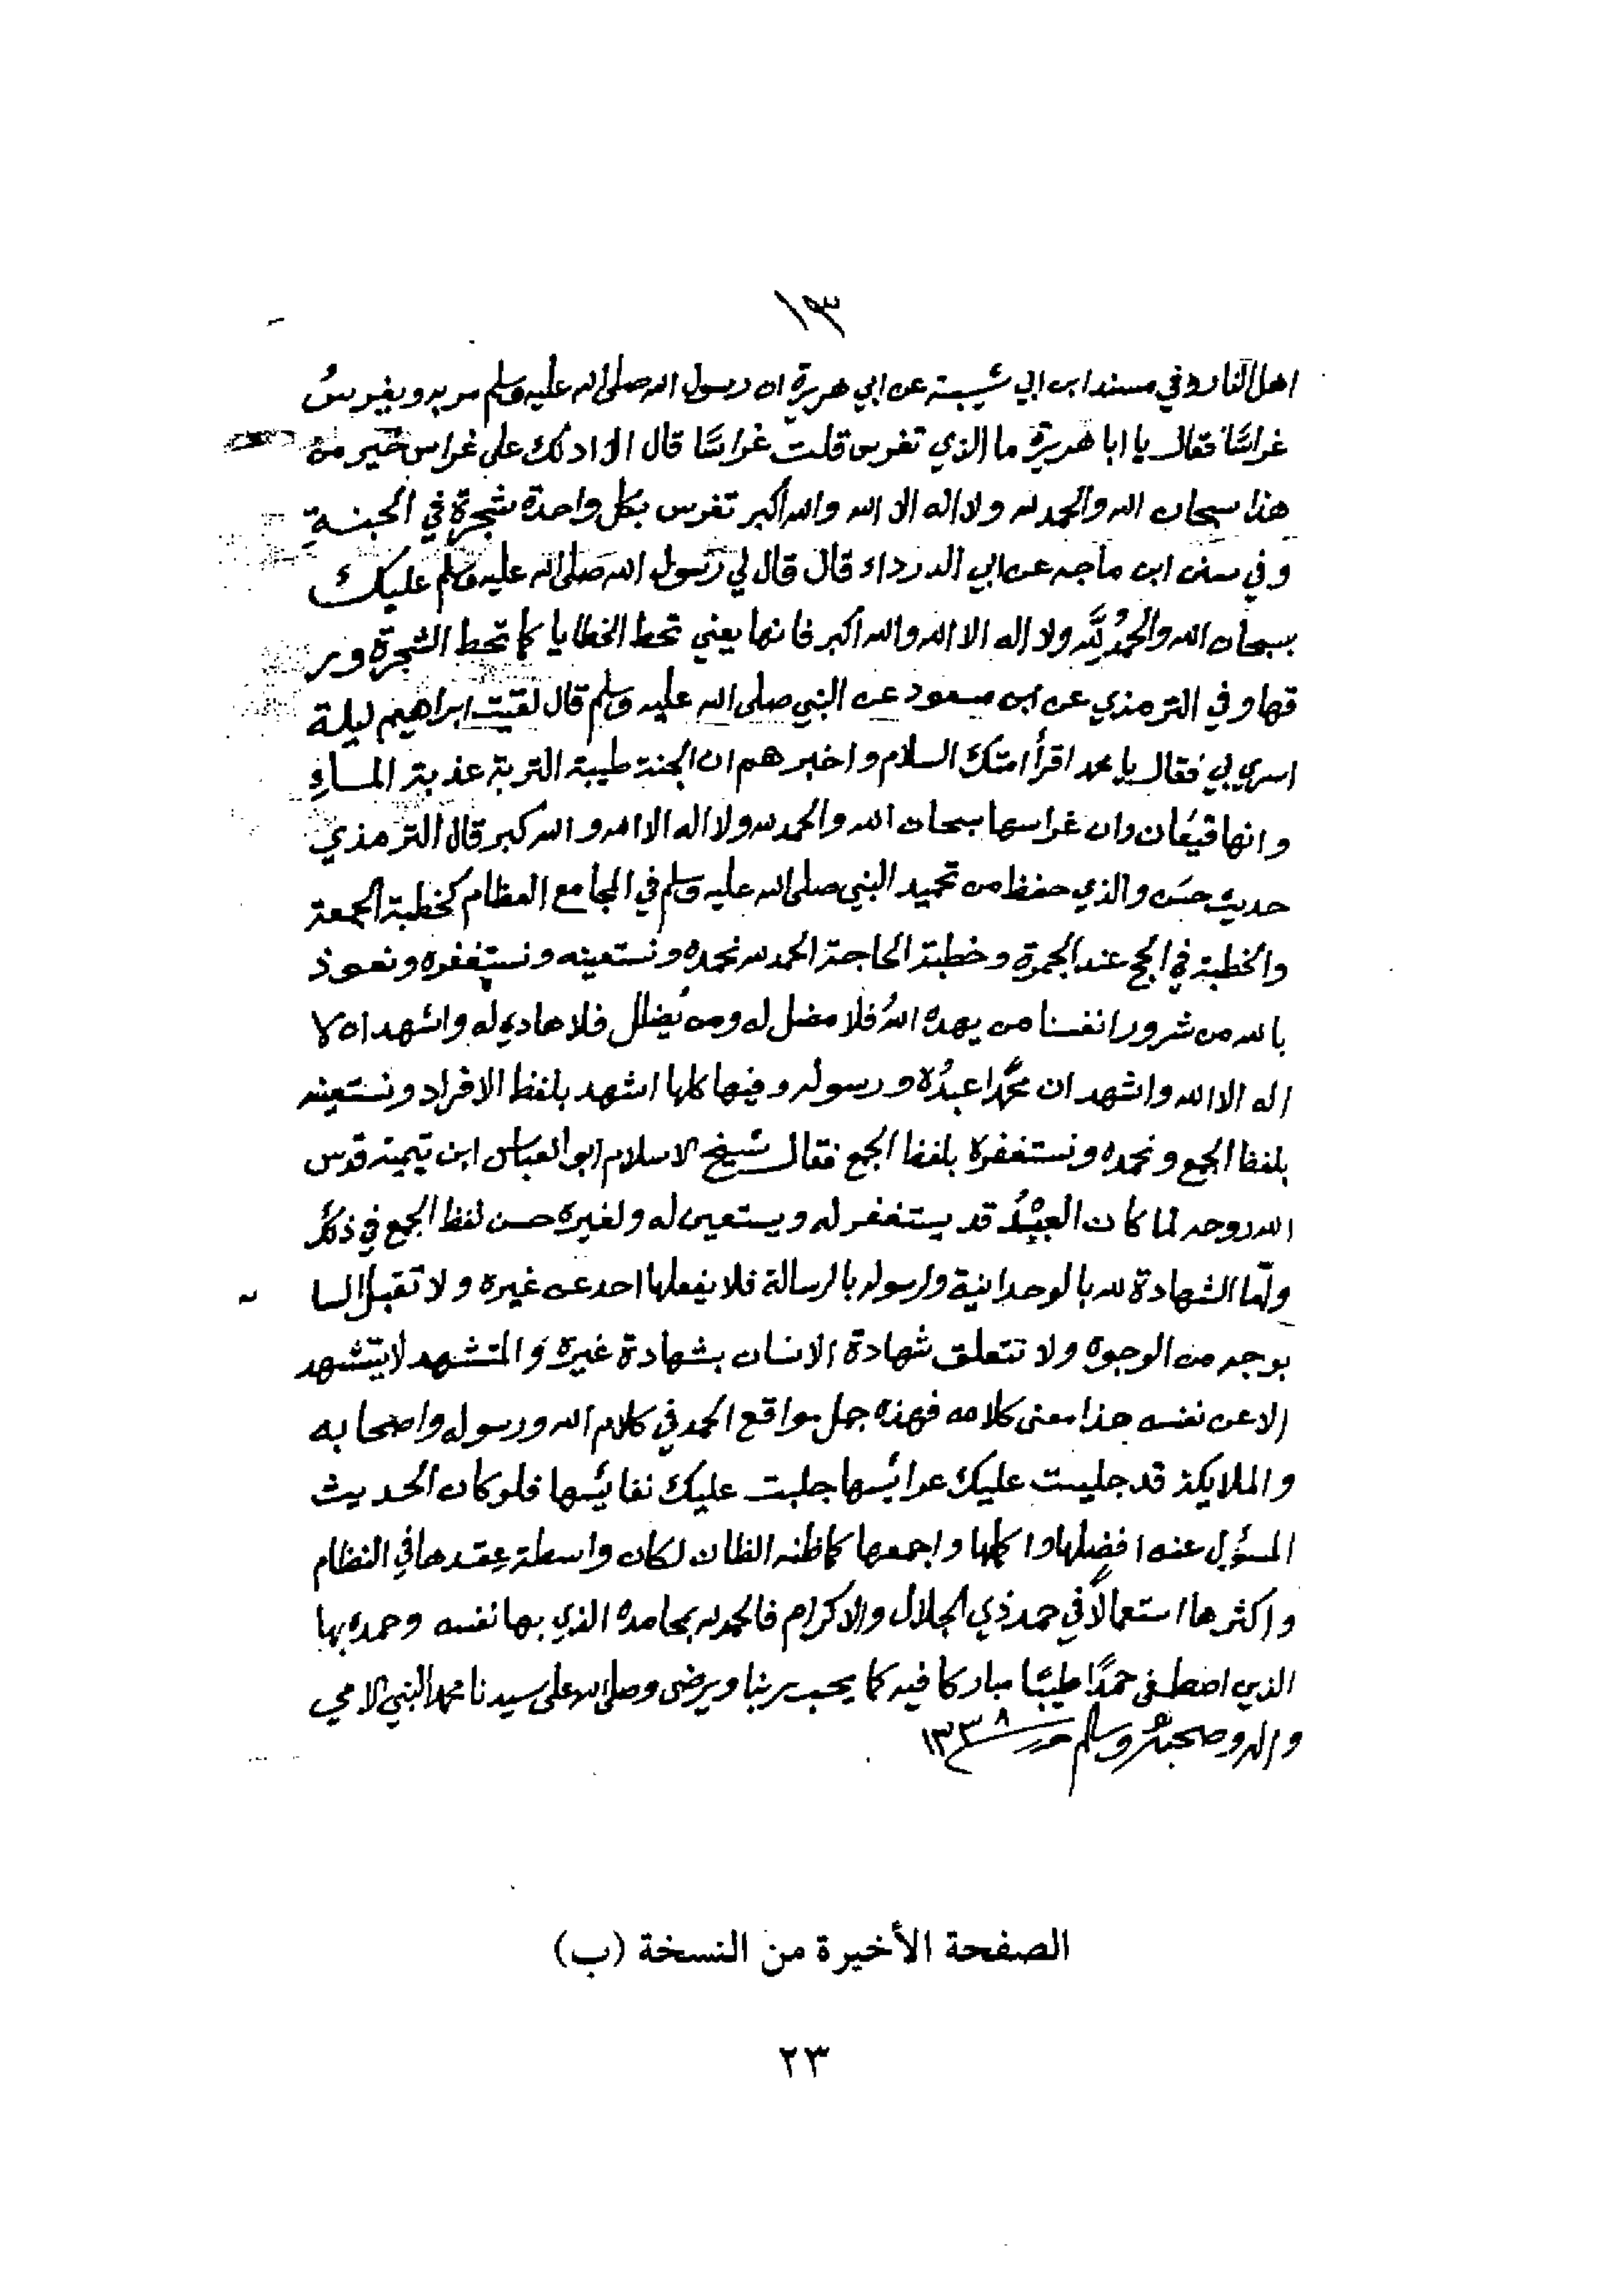 ١٣
اهل النار وفي مسند ابن ابي شيبة عن ابي هريرة ان رسول الله صلى الله عليه وسلم مر به ويغرسُ
غراسًا فقال يا ابا هريرة ما الذي تغرس قلت غراسًا قال الا ادلك على غراس خير من
هذا سبحان الله والحمد لله ولا اله الا الله والله أكبر تغرس بكل واحدة شجرة في الجنة
وفي سنن ابن ماجه عن ابي الدرداء قال قال لي رسول الله صلى الله عليه وسلم عليك
بسبحان الله والحمدُ لِلّه ولا اله الا الله والله اكبر فانها يعني تحط الخطايا كما تحط الشجرة ور
قها وفي الترمذي عن ابن مسعود عن النبي صلى الله عليه وسلم قال لقيت ابراهيم ليلة
اسري بي فقال يا محمد اقرأ امتك السلام واخبرهم ان الجنة طيبة التربة عذبة الماءِ
وانها قيعان وان غراسها سبحان الله والحمد لله ولا اله الا الله والله كبر قال الترمذي
حديث حسن والذي حفظ من تحميد النبي صلى الله عليه وسلم في المجامع العظام كخطبة الجمعة
والخطبة في الحج عند الجمرة وخطبة الحاجة الحمد لله نحمده ونستعينه ونستغفره ونعوذ
بالله من شرور انفسنا من يهده اللهُ فلا مضل له ومن يُضلل فلا هادي له واشهد ان لا
اله الا الله واشهد ان محمدًا عبدُه ورسوله وفيها كلها اشهد بلفظ الافراد ونستعينه
بلفظ الجمع ونحمده ونستغفره بلفظ الجمع فقال شيخ الاسلام ابو العباس ابن تيمية قدس
الله روحه لما كان العبدُ قد يستغفر له ويستعين له ولغيره حسن لفظ الجمع في ذلك
وامّا الشهادة لله بالوحدانية ولرسوله بالرسالة فلا يفعلها احد عن غيره ولا تقبل النيا
بوجه من الوجوه ولا تتعلق شهادة الانسان بشهادة غيره والمتشهد لا يتشهد
الا عن نفسه هذا معنى كلامه فهذه جل مواقع الحمد في كلام الله ورسوله واصحابه
والملايكة قد جليت عليك عرائسها جلبت عليك نفائسها فلو كان الحديث
المسؤل عنه افضلها واكملها واجمعها كما ظنه الظان لكان واسطة عقدها في النظام
واكثرها استعمالًا في حمد ذي الجلال والاكرام فالحمد لله بمحامده الذي بها نفسه وحمده بها
الذين اصطفى حمدًا طيبًا مباركا فيه كما يحب ربنا ويرضى وصلى الله على سيدنا محمد النبي الامي
واله وصحبه وسلم ١٣٣٨
الصفحة الأخيرة من النسخة (ب)
٢٣